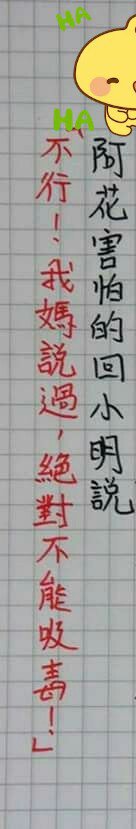 HA
HA
阿花害怕的回小明說
「不行！我媽說過，絕對不能吸毒！」